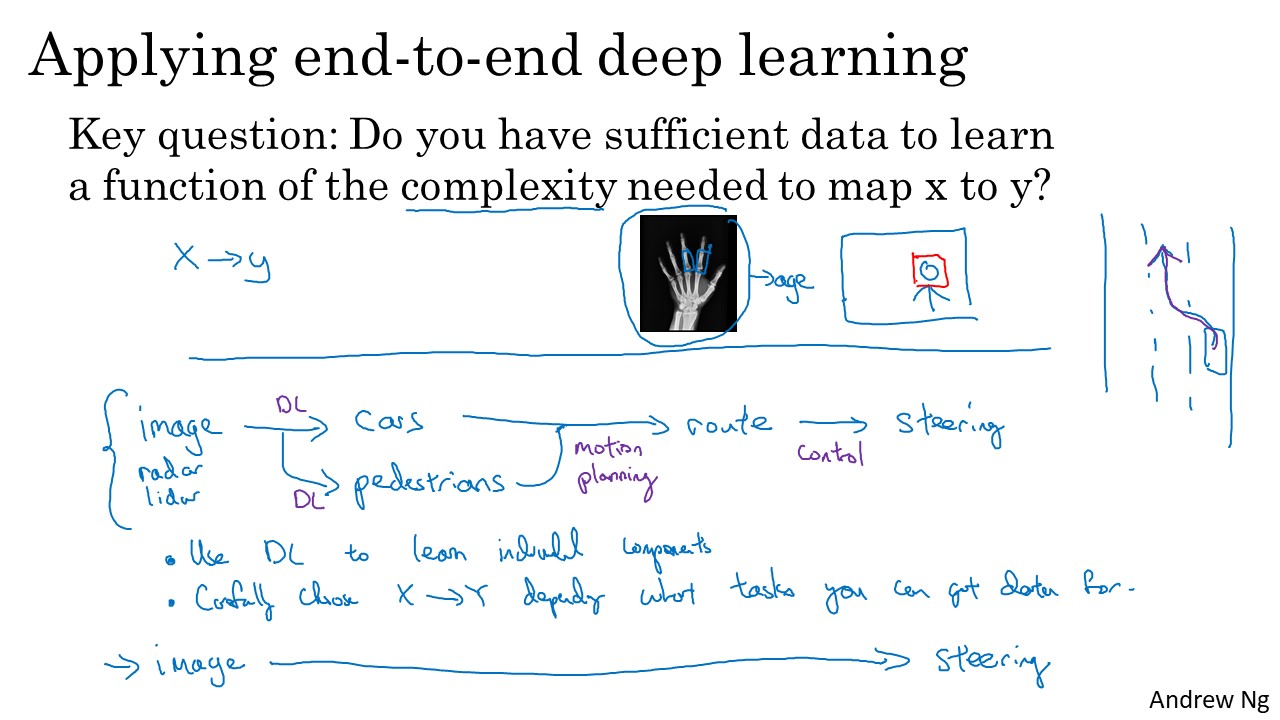 Applying end-to-end deep learning
Key question: Do you have sufficient data to learn
a function of the complexity needed to map x to y?
X → y
→ age
image DL → cars → route → steering
radar
lidar
DL → pedestrians
motion
planning
control
• Use DL to learn individual components
• Carefully choose X → Y depending what tasks you can get data for.
→ image → steering
Andrew Ng